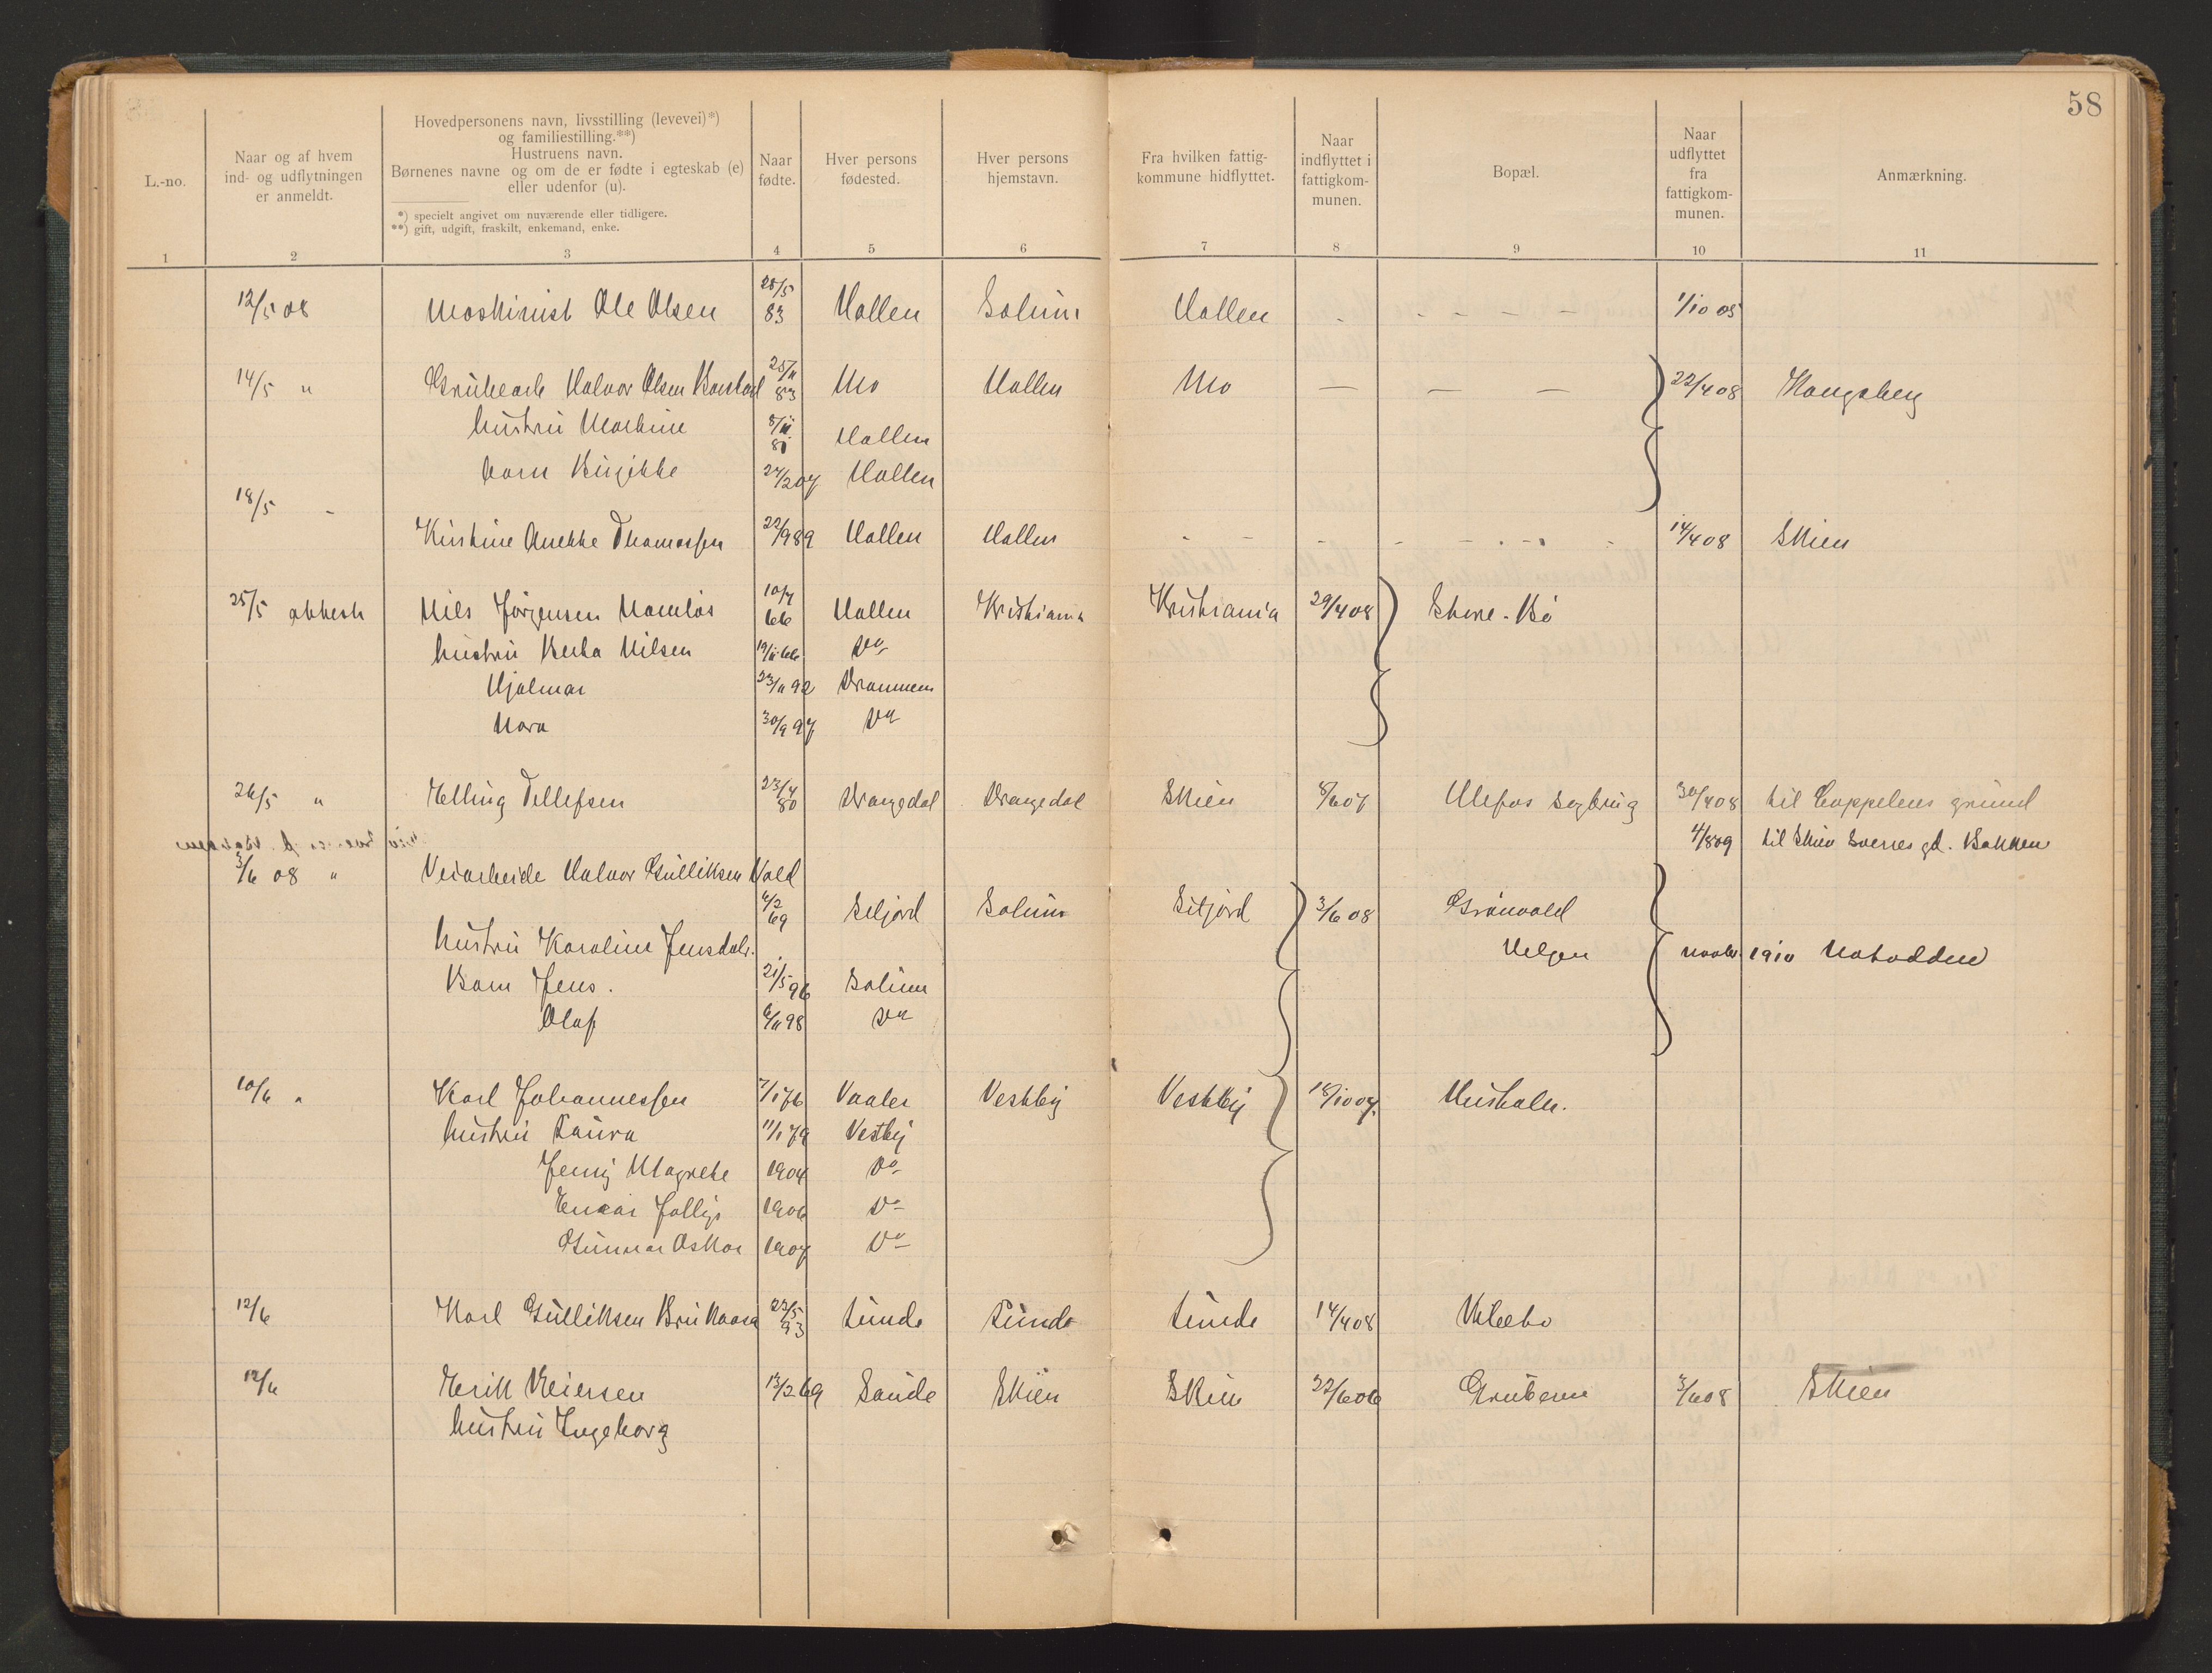 58
L.-no.
Naar og af hvem
ind- og udflytningen
er anmeldt.
Hovedpersonens navn, livsstilling (levevei)*)
og familiestilling.**)
Hustruens navn.
Børnenes navne og om de er fødte i egteskab (e)
eller udenfor (u).
*) specielt angivet om nuværende eller tidligere.
**) gift, udgift, fraskilt, enkemand, enke.
Naar
fødte.
Hver persons
fødested.
Hver persons
hjemstavn.
Fra hvilken fattig-
kommune hidflyttet.
Naar
indflyttet i
fattigkom-
munen.
Bopæl.
Naar
udflyttet
fra
fattigkom-
munen.
Anmærkning.
1 2 3 4 5 6 7 8 9 10 11
12/5 08 Maskinist Ole Olsen 28/5 83 Hollen Solum Hollen 1/10 05
14/5 " Grubearb Halvor Olsen 25/11 83 Mo Hollen Mo — — — 22/4 08 Kongsberg
hustru Hollen
barn Birgitte 24/2 07 Hollen
18/5 -
Kirstine Anette Thomassen 22/9 89 Hollen Hollen 14/4 08 Skien
25/5 attest Nils Jörgensen Namlös 10/7 66 Hollen Kristiania Kristiania 29/4 08 Store-Bö
hustru Berta Nilsen 19/11 66 Do
Hjalmar 23/11 92 Drammen
Nora 30/9 97 Do
26/5 " Elling Tellefsen 23/4 80 Drangedal Drangedal Skien 8/6 07 Ulefos sagbrug 30/4 08 til Cappelens grund
4/8 09 til Skien Sverres gd. Bakken
3/6 08 " Veiarbeide Halvor Gulliksen Vold
6/2 69 Seljord Solum Siljord 3/6 08 Grönvold
hustru Karoline Jensdatr. Helgen 1910 Notodden
Barn Jens. 21/5 96 Solum
Olaf 6/11 98 Do
10/6 " Karl Johannessen 7/1 76 Vaaler Vestby Vestby 18/10 07. Husholm.
hustru Laura 11/1 79 Vestby
Jenny Magrete 1904 Do
Einar 1906 Do
Gunnar Oskar 1907 Do
12/6 Karl Gulliksen 22/5 93 Lunde Lunde Lunde 14/4 08 Klevbo
12/6 Erik Reiersen 13/2 69 Saude Skien Skien 22/6 06 Gruberne 3/6 08 Skien
hustru Ingeborg